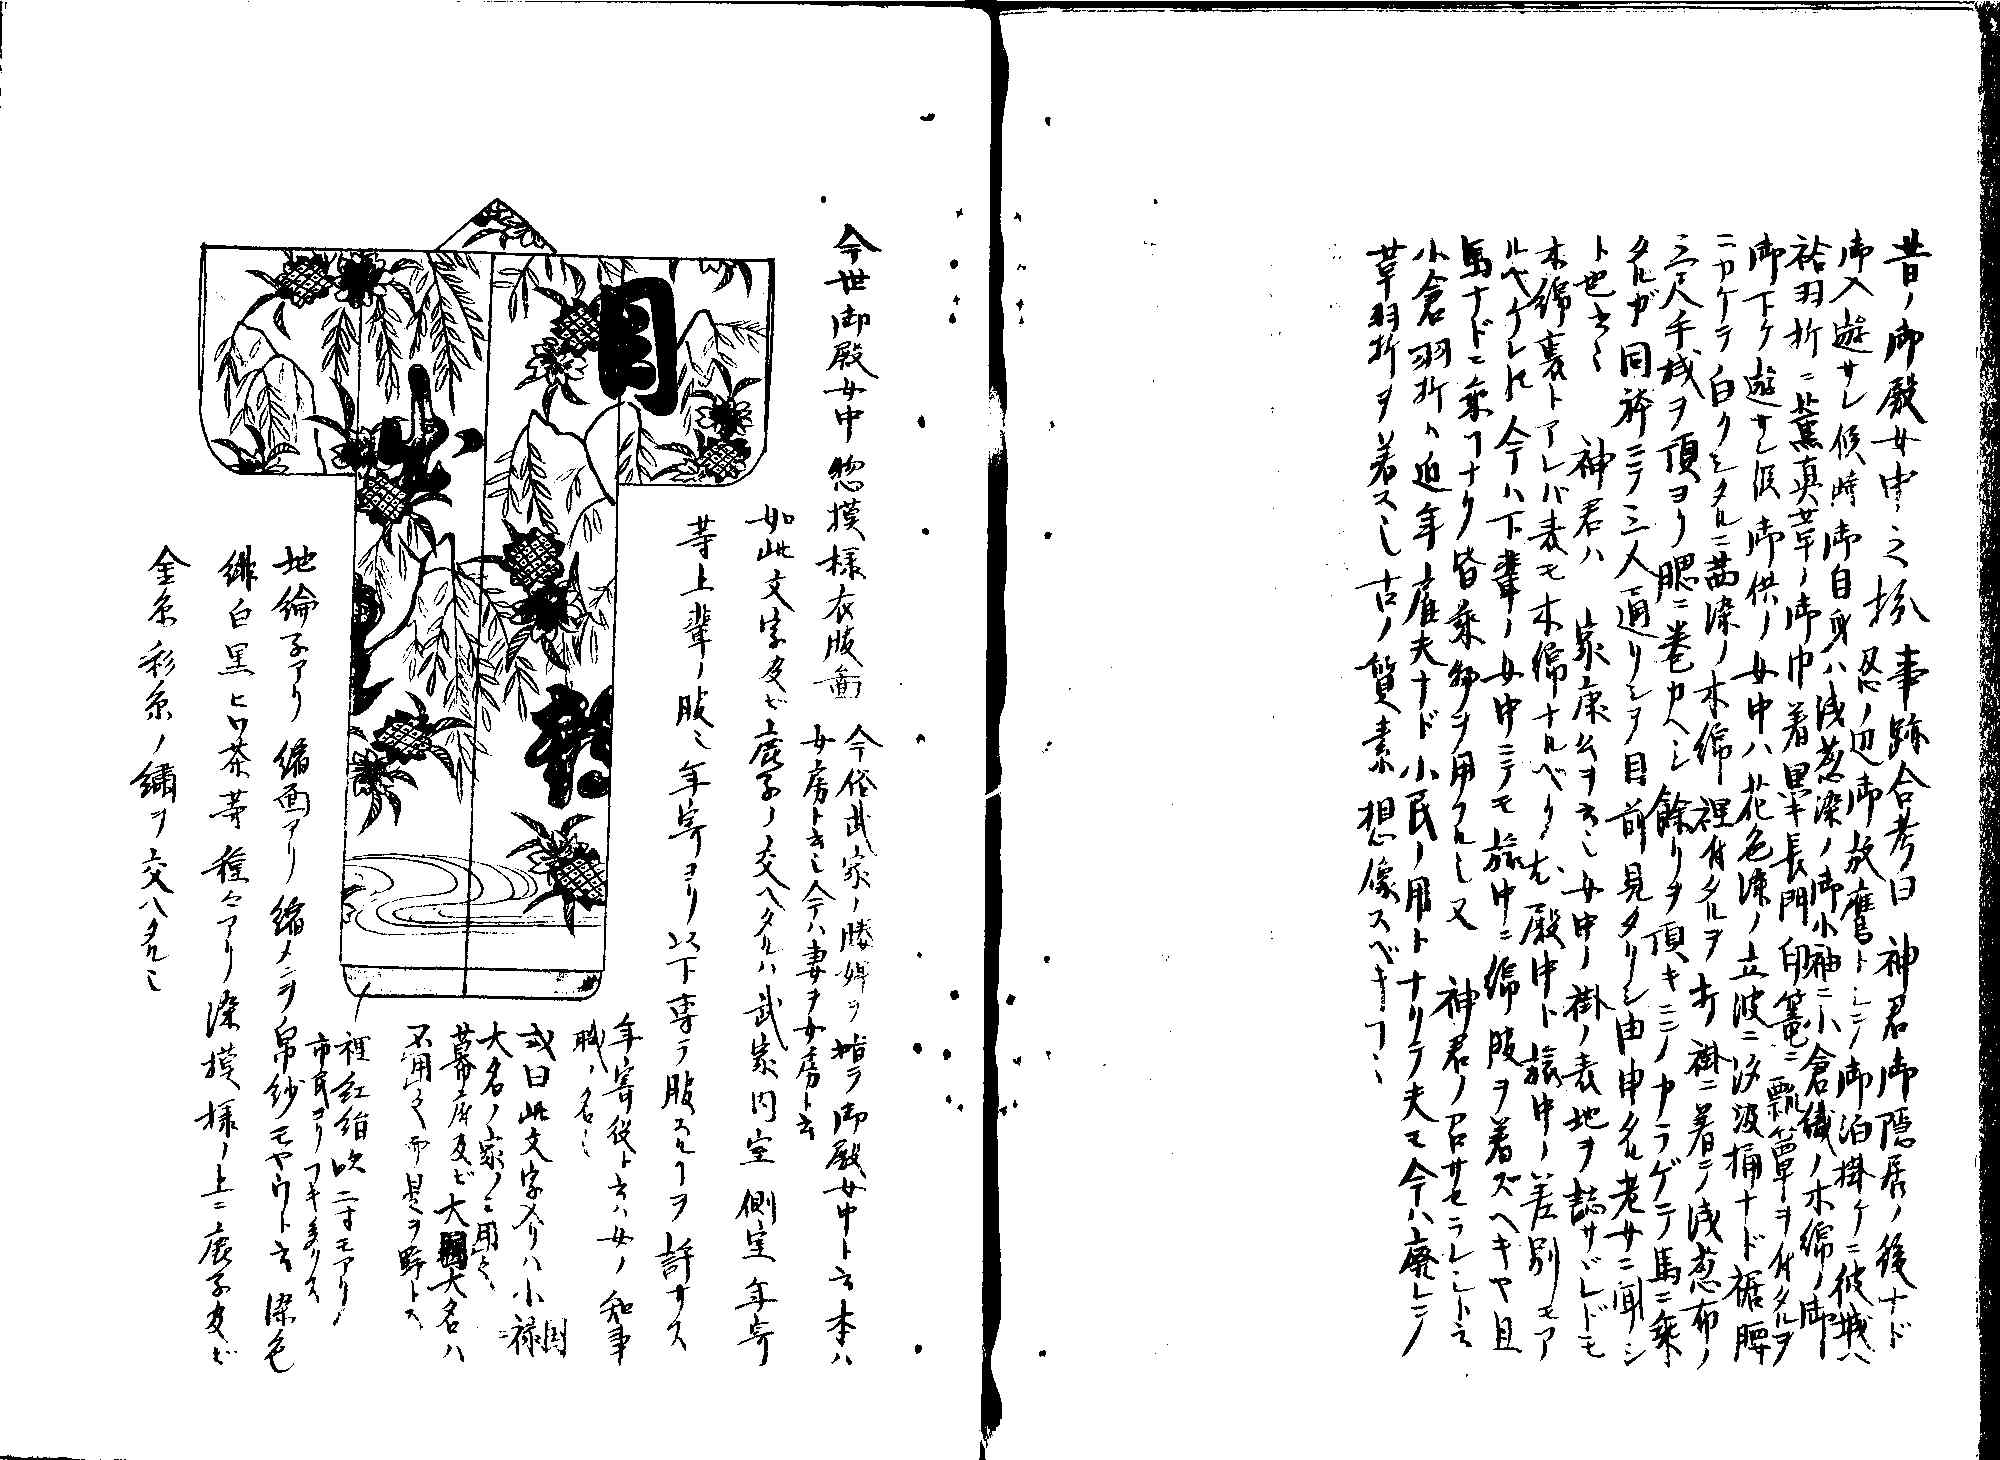 昔ノ御殿女中之扮 事跡合考曰 神君御隠居ノ後ナド
忍ノ辺御放鷹トシテ御泊掛ケニ彼城ハ
御入遊サレ候時御自身ハ浅葱染ノ御小袖ニ小倉織ノ木綿ノ御
袷羽折ニ薫真草ノ御巾着畢長門印篭ニ瓢箪ヲ付タルヲ
御下ケ遊サレ候御供ノ女中ハ花色染ノ立波ニ汐汲桶ナド裾腰
ニカケテ白クシタルニ茜染ノ木綿裡付タルヲ打掛ニ着シテ浅葱布ノ
三尺手拭ヲ頂ヨリ腮ニ巻カヘシ餘リヲ頂キニシノカラゲテ馬ニ乗
タルガ同袴ニテ三人通リシヲ目前見タリシ由申タル老女ニ聞シ
ト也云々 神君ハ 家康公ヲ云也女中ノ掛ノ表地ヲ誌サヾレドモ
木綿裏トアレバ表モ木綿ナルベク尤殿中ト旅中ノ差別モア
ルベケレ𪜈今ハ下輩ノ女中ニテモ旅中ニ綿服ヲ着ズヘキヤ且
馬ナドニ乗コナク皆乗物ヲ用フル也又 神君ノ召サセラレシト云
小倉羽折ハ近年雇夫ナド小民ノ用トナリテ夫モ今ハ廃シテ
草羽折ヲ着ス也古ノ質素想像スベキコト也
今世御殿女中惣摸様衣服圖
今俗武家ノ媵婢ヲ指テ御殿女中ト云本ハ
女房ト云也今ハ妻ヲ女房ト云
如此文字及ビ鹿子ノ交ヘタルハ武家内室側室年寄
等上輩ノ服也年寄ヨリ以下専ラ服スルヿヲ許サス
年寄役ト云ハ女ノ知事
職ノ名也
或曰此文字入リハ小禄
大名ノ家ノミ用之
幕府及ビ大国大名ハ
不用之而是ヲ野トス
裡紅絹吹二寸モアリ
市民ヨリフキ多クス
地綸子アリ縮画アリ縮メンヲ帛紗モヤウト云染色
緋白黒ヒワ茶等種々アリ染摸様ノ上ニ鹿子及ビ
金糸彩糸ノ繍ヲ交ヘタル也